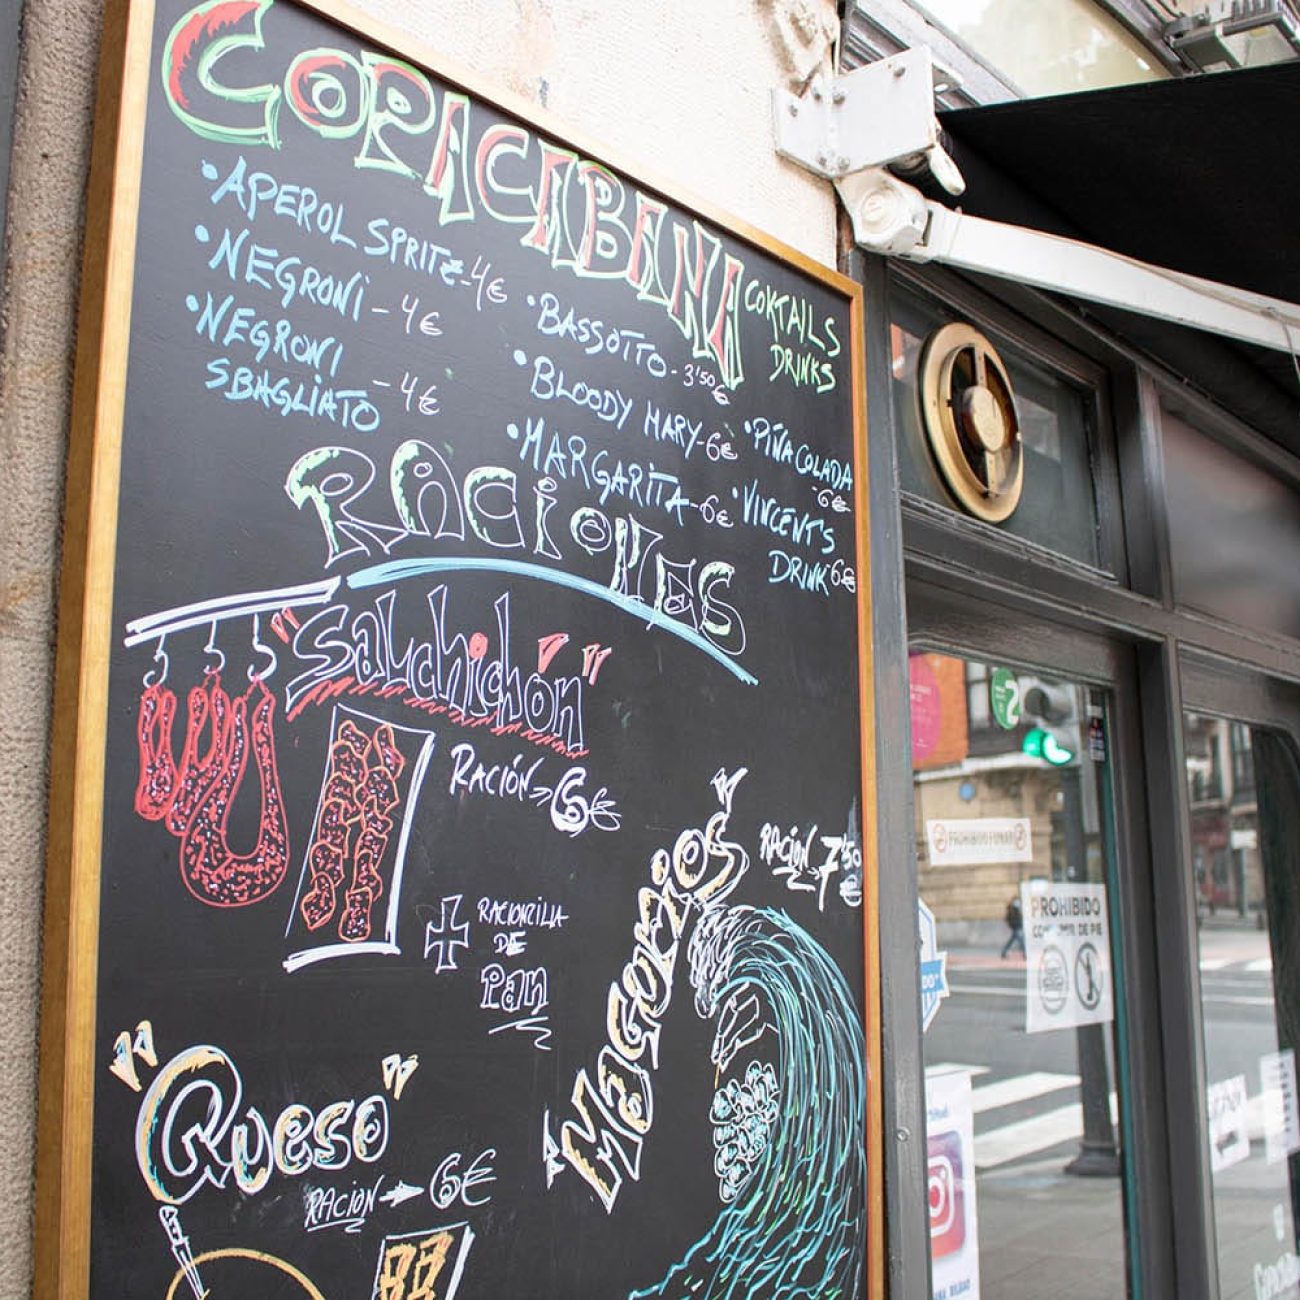 COPACABANA
COKTAILS
DRINKS
•APEROL SPRITZ-4€
•NEGRONI-4€
•NEGRONI
SBAGLIATO -4€
•BASSOTTO-3'50€
•BLOODY MARY-6€
•MARGARITA-6€
•PIÑA COLADA
6€
•VINCENT'S
DRINK 6€
RACIONES
"Salchichón"
RACIÓN→6€
+ RACIONCILLA
DE
Pan
"MAGURIOS"
RACIÓN→7'50€
"Queso"
RACIÓN→6€
2
PROHIBIDO FUMAR
PROHIBIDO
CONSUMIR DE PIE